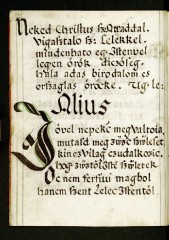 Neked Christus halttáddal.
Vigasztalo sz: Lelekkel.
mindenhato eg: Istenvel
legen örök dicziöség.
Hala adas birodalom es
orszaglas öröcke. Ug: le:
Alius
Jövel nepeknek megvaltoia,
mutasd meg szüz szüleset
kin ez vilag czudalkozic,
Hog istöt illic születec
De nem ferfiui magbol
hanem szent Lelec Istentöl